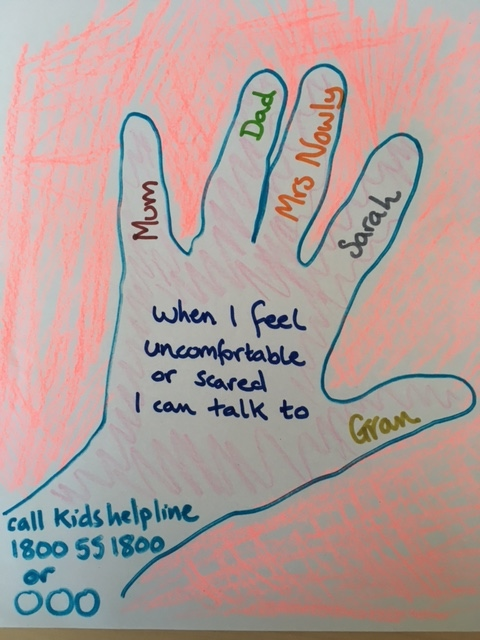 Mum
Dad
Mrs Nowly
Sarah
When I feel
uncomfortable
or scared
I can talk to
Gran
call Kids helpline
1800 55 1800
or
000